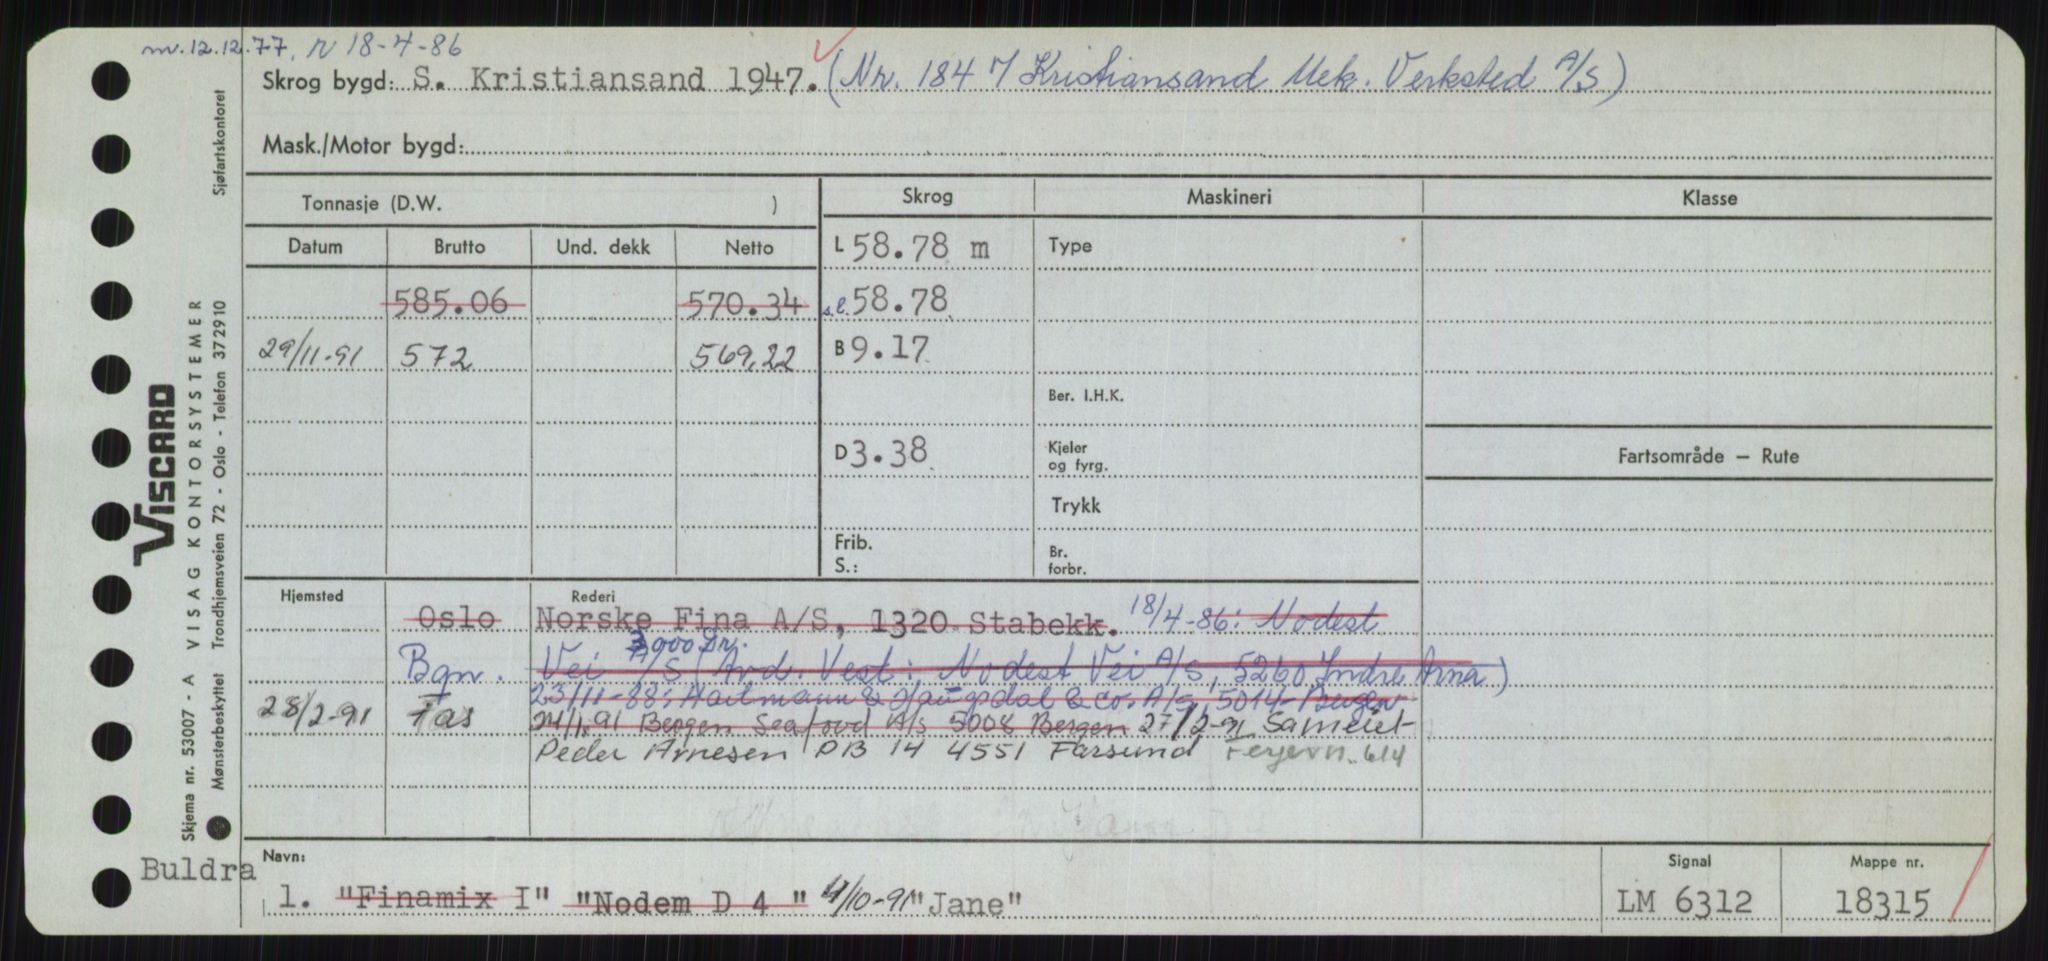 m. 12.12.77, r 18-4-86
Skrog bygd: S. Kristiansand 1947. (Nr. 184 / Kristiansand Mek. Verksted A/S)
Mask./Motor bygd:
Tonnasje (D.W. )
Skrog
Maskineri
Klasse
Datum Brutto Und. dekk Netto
L 58.78 m
Type
585.06 570.34
s.l. 58.78
29/11-91 572 569,22
B 9.17
Ber. I.H.K.
D 3.38
Kjeler
og fyrg.
Fartsområde — Rute
Trykk
Frib.
S.:
Br.
forbr.
Hjemsted
Rederi
Oslo Norske Fina A/S, 1320 Stabekk. 18/4-86: Nodest
3000 Dr.
Bgn. Vei A/S (Avd. Vest: Nodest Vei A/S, 5260 Indre Arna)
23/11-88: Hartmann & Haugsdal & Co. A/S, 5014 Bergen
28/2-91 Fas 24/1.91 Bergen Seafood A/S 5008 Bergen 27/2-91 Sameiet
Peder Arnesen PB 14 4551 Farsund Feyervn. 614
Navn:
Signal
Mappe nr.
Buldra
1. "Finamix I" "Nodem D 4 " 4/10-91 "Jane"
LM 6312
18315
VISCARD
Skjema nr. 53007 - A VISAG KONTORSYSTEMER
Mønsterbeskyttet Trondhjemsveien 72 - Oslo - Telefon 372910 Sjøfartskontoret